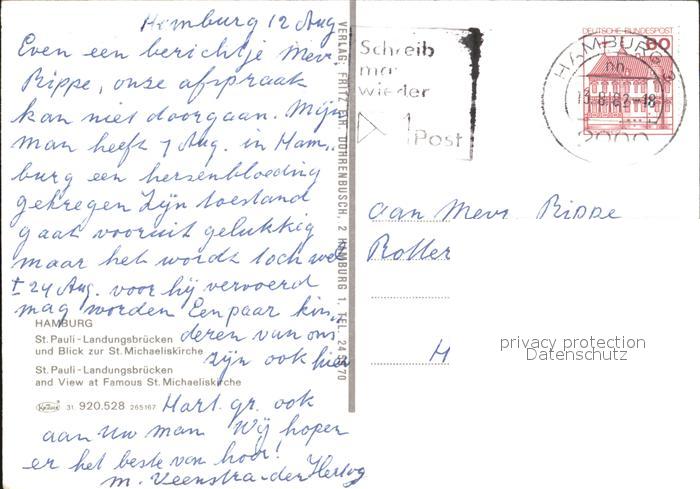 Hamburg 12 Aug
Even een berichtje Mevr.
Rippe, onze afspraak
kan niet doorgaan. Mijn
man heeft 7 Aug. in Ham-
burg een hersenbloeding
gekregen Zijn toestand
gaat vooruit gelukkig
maar het wordt toch wel
± 24 Aug. voor hij vervoerd
mag worden Een paar kin-
deren van ons
zijn ook hier
Hart. gr. ook
aan Uw man Wij hopen
er het beste van hoor!
M. Veenstra-den Hertog
HAMBURG
St. Pauli - Landungsbrücken
und Blick zur St. Michaeliskirche
St. Pauli - Landungsbrücken
and View at Famous St. Michaeliskirche
Krüger 31 920.528 265167
VERLAG: FRITZ DOHRENBUSCH, 2 HAMBURG 1, TEL. 24
Schreib
mal
wieder
Post
DEUTSCHE BUNDESPOST
60
HAMBURG
nh
13.8.82-18
2000
aan Mevr Rippe
Rotter
H
privacy protection
Datenschutz